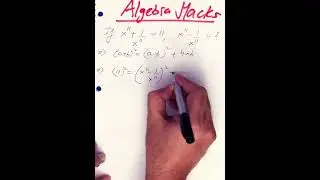 Algebra Hacks
If x⁴ + 1/x⁴ = 11, x⁴ - 1/x⁴ = ?
⇒ (a+b)² = (a-b)² + 4ab
⇒ (11)² = (x⁴ - 1/x⁴)²